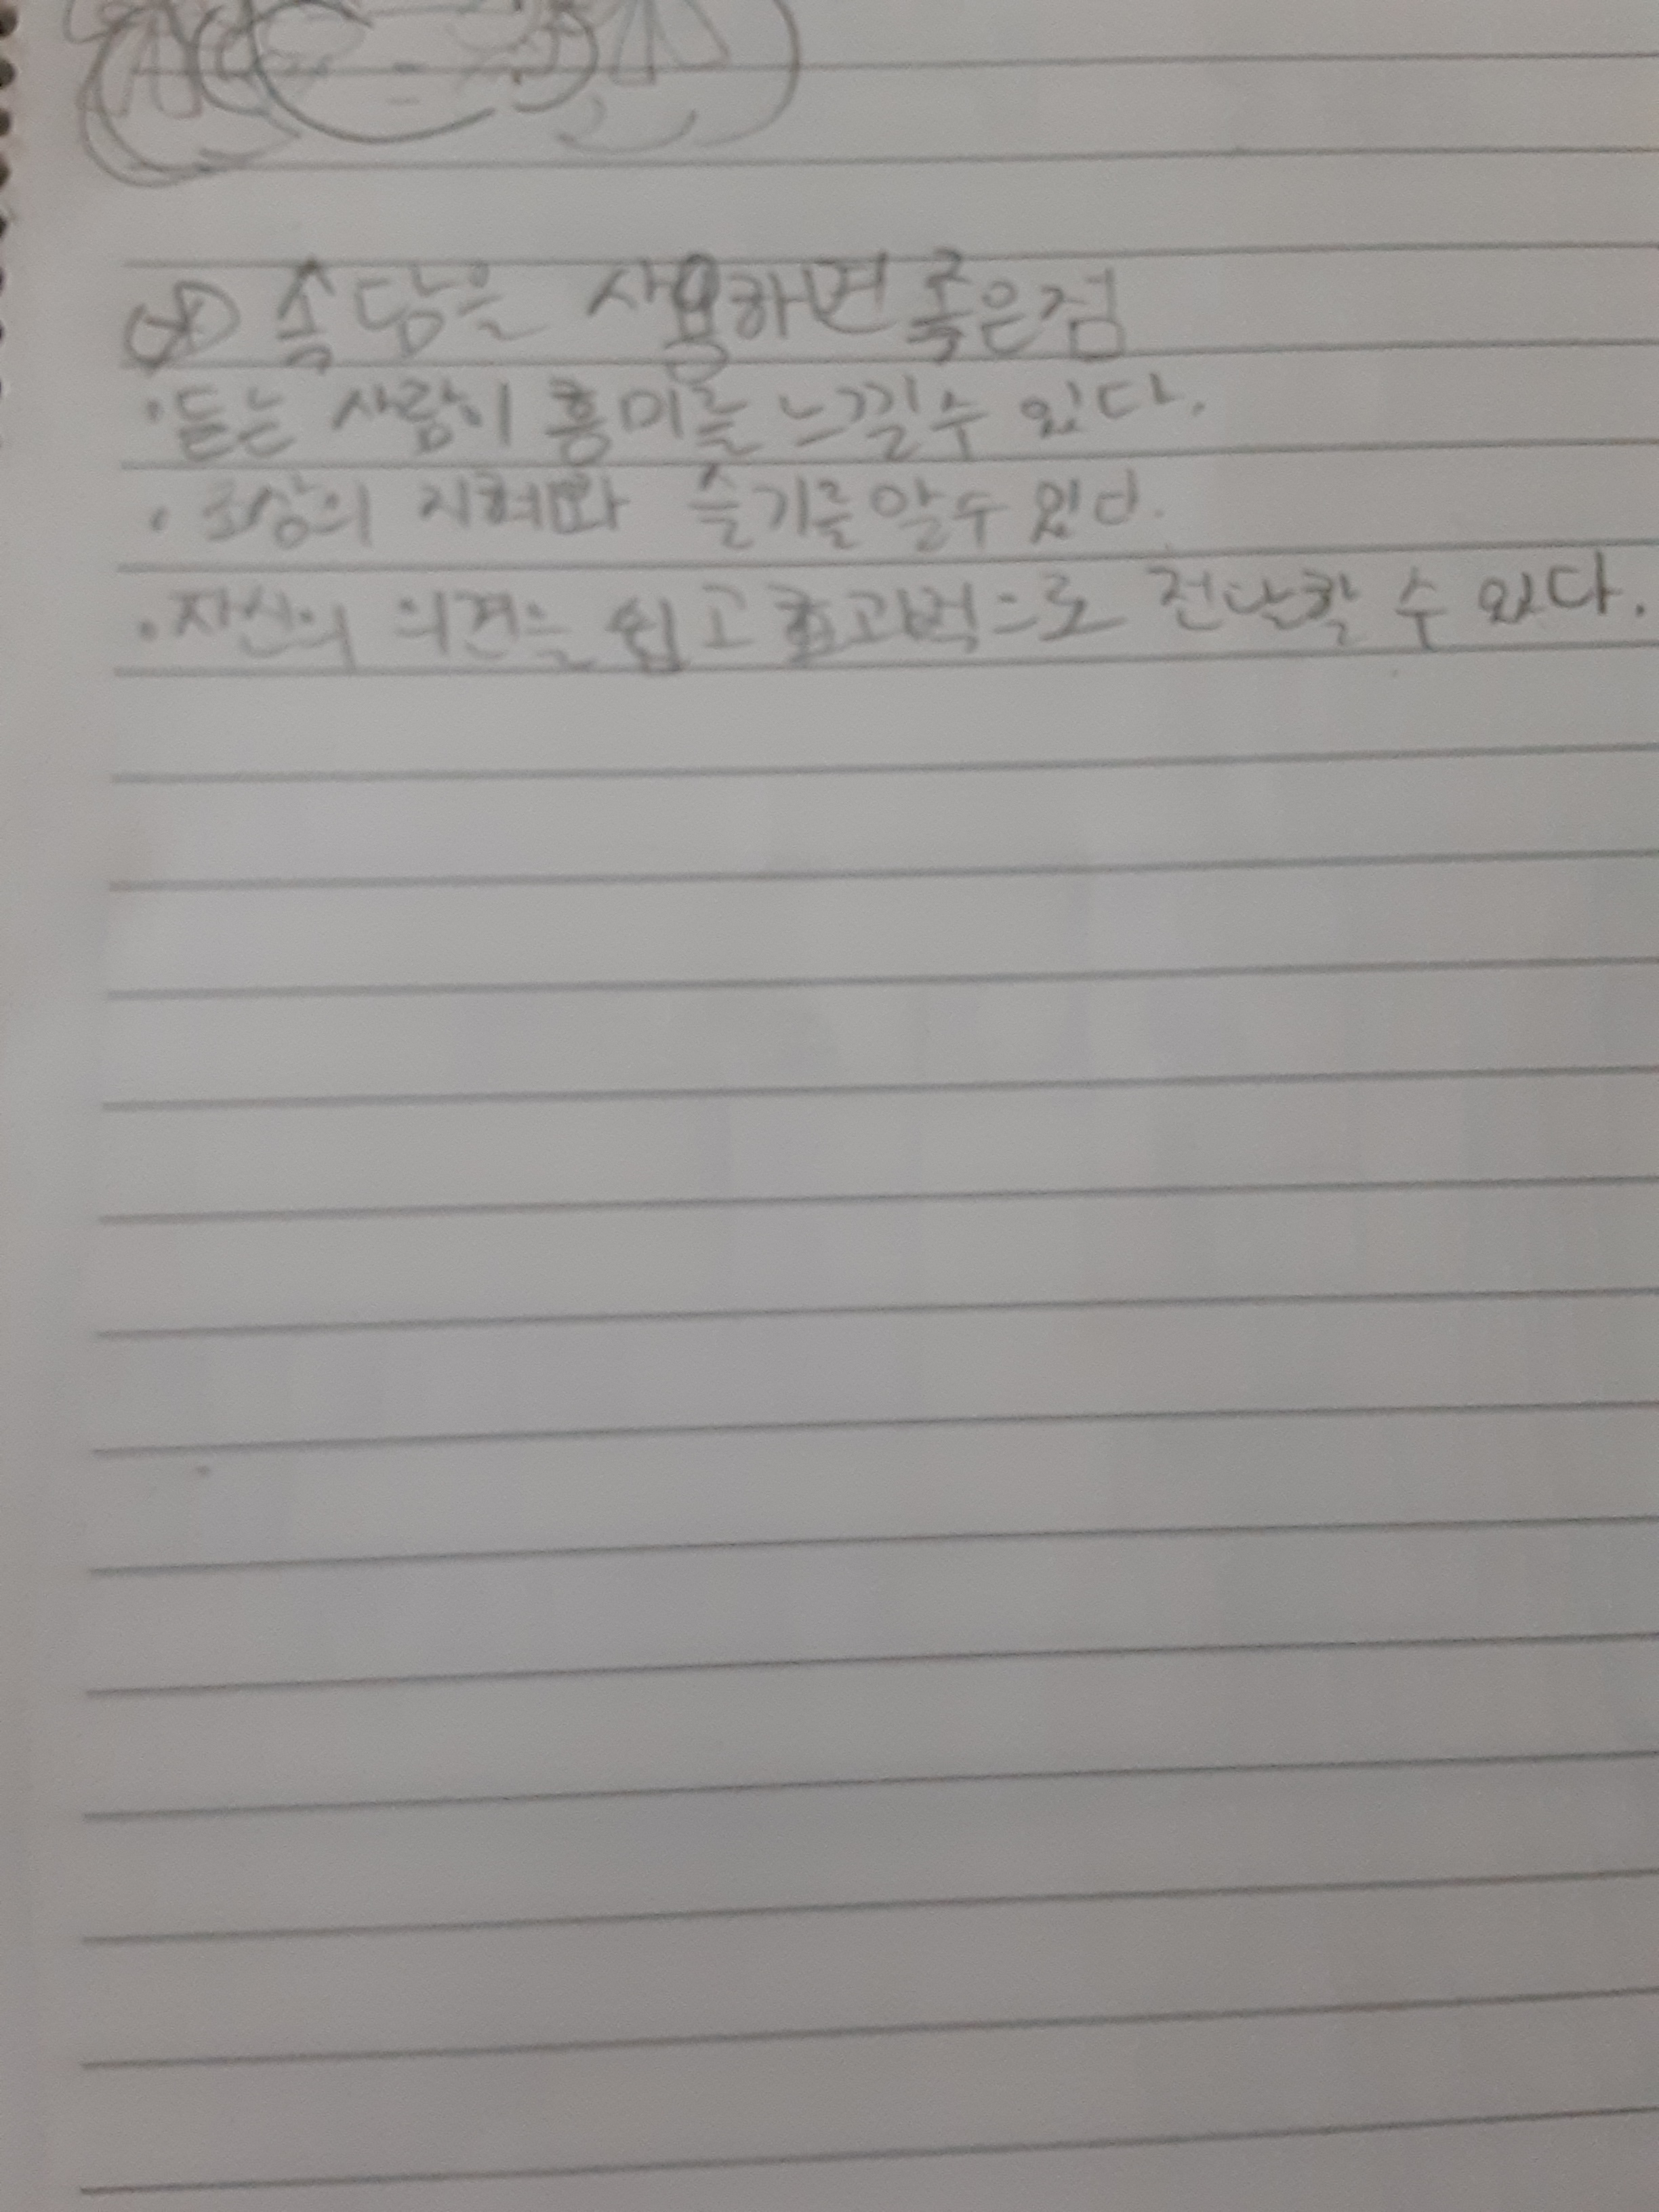 속담을 사용하면 좋은점
· 듣는 사람이 흥미를 느낄수 있다.
· 조상의 지혜와 슬기를 알수 있다.
· 자신의 의견을 쉽고 효과적으로 전달할 수 있다.